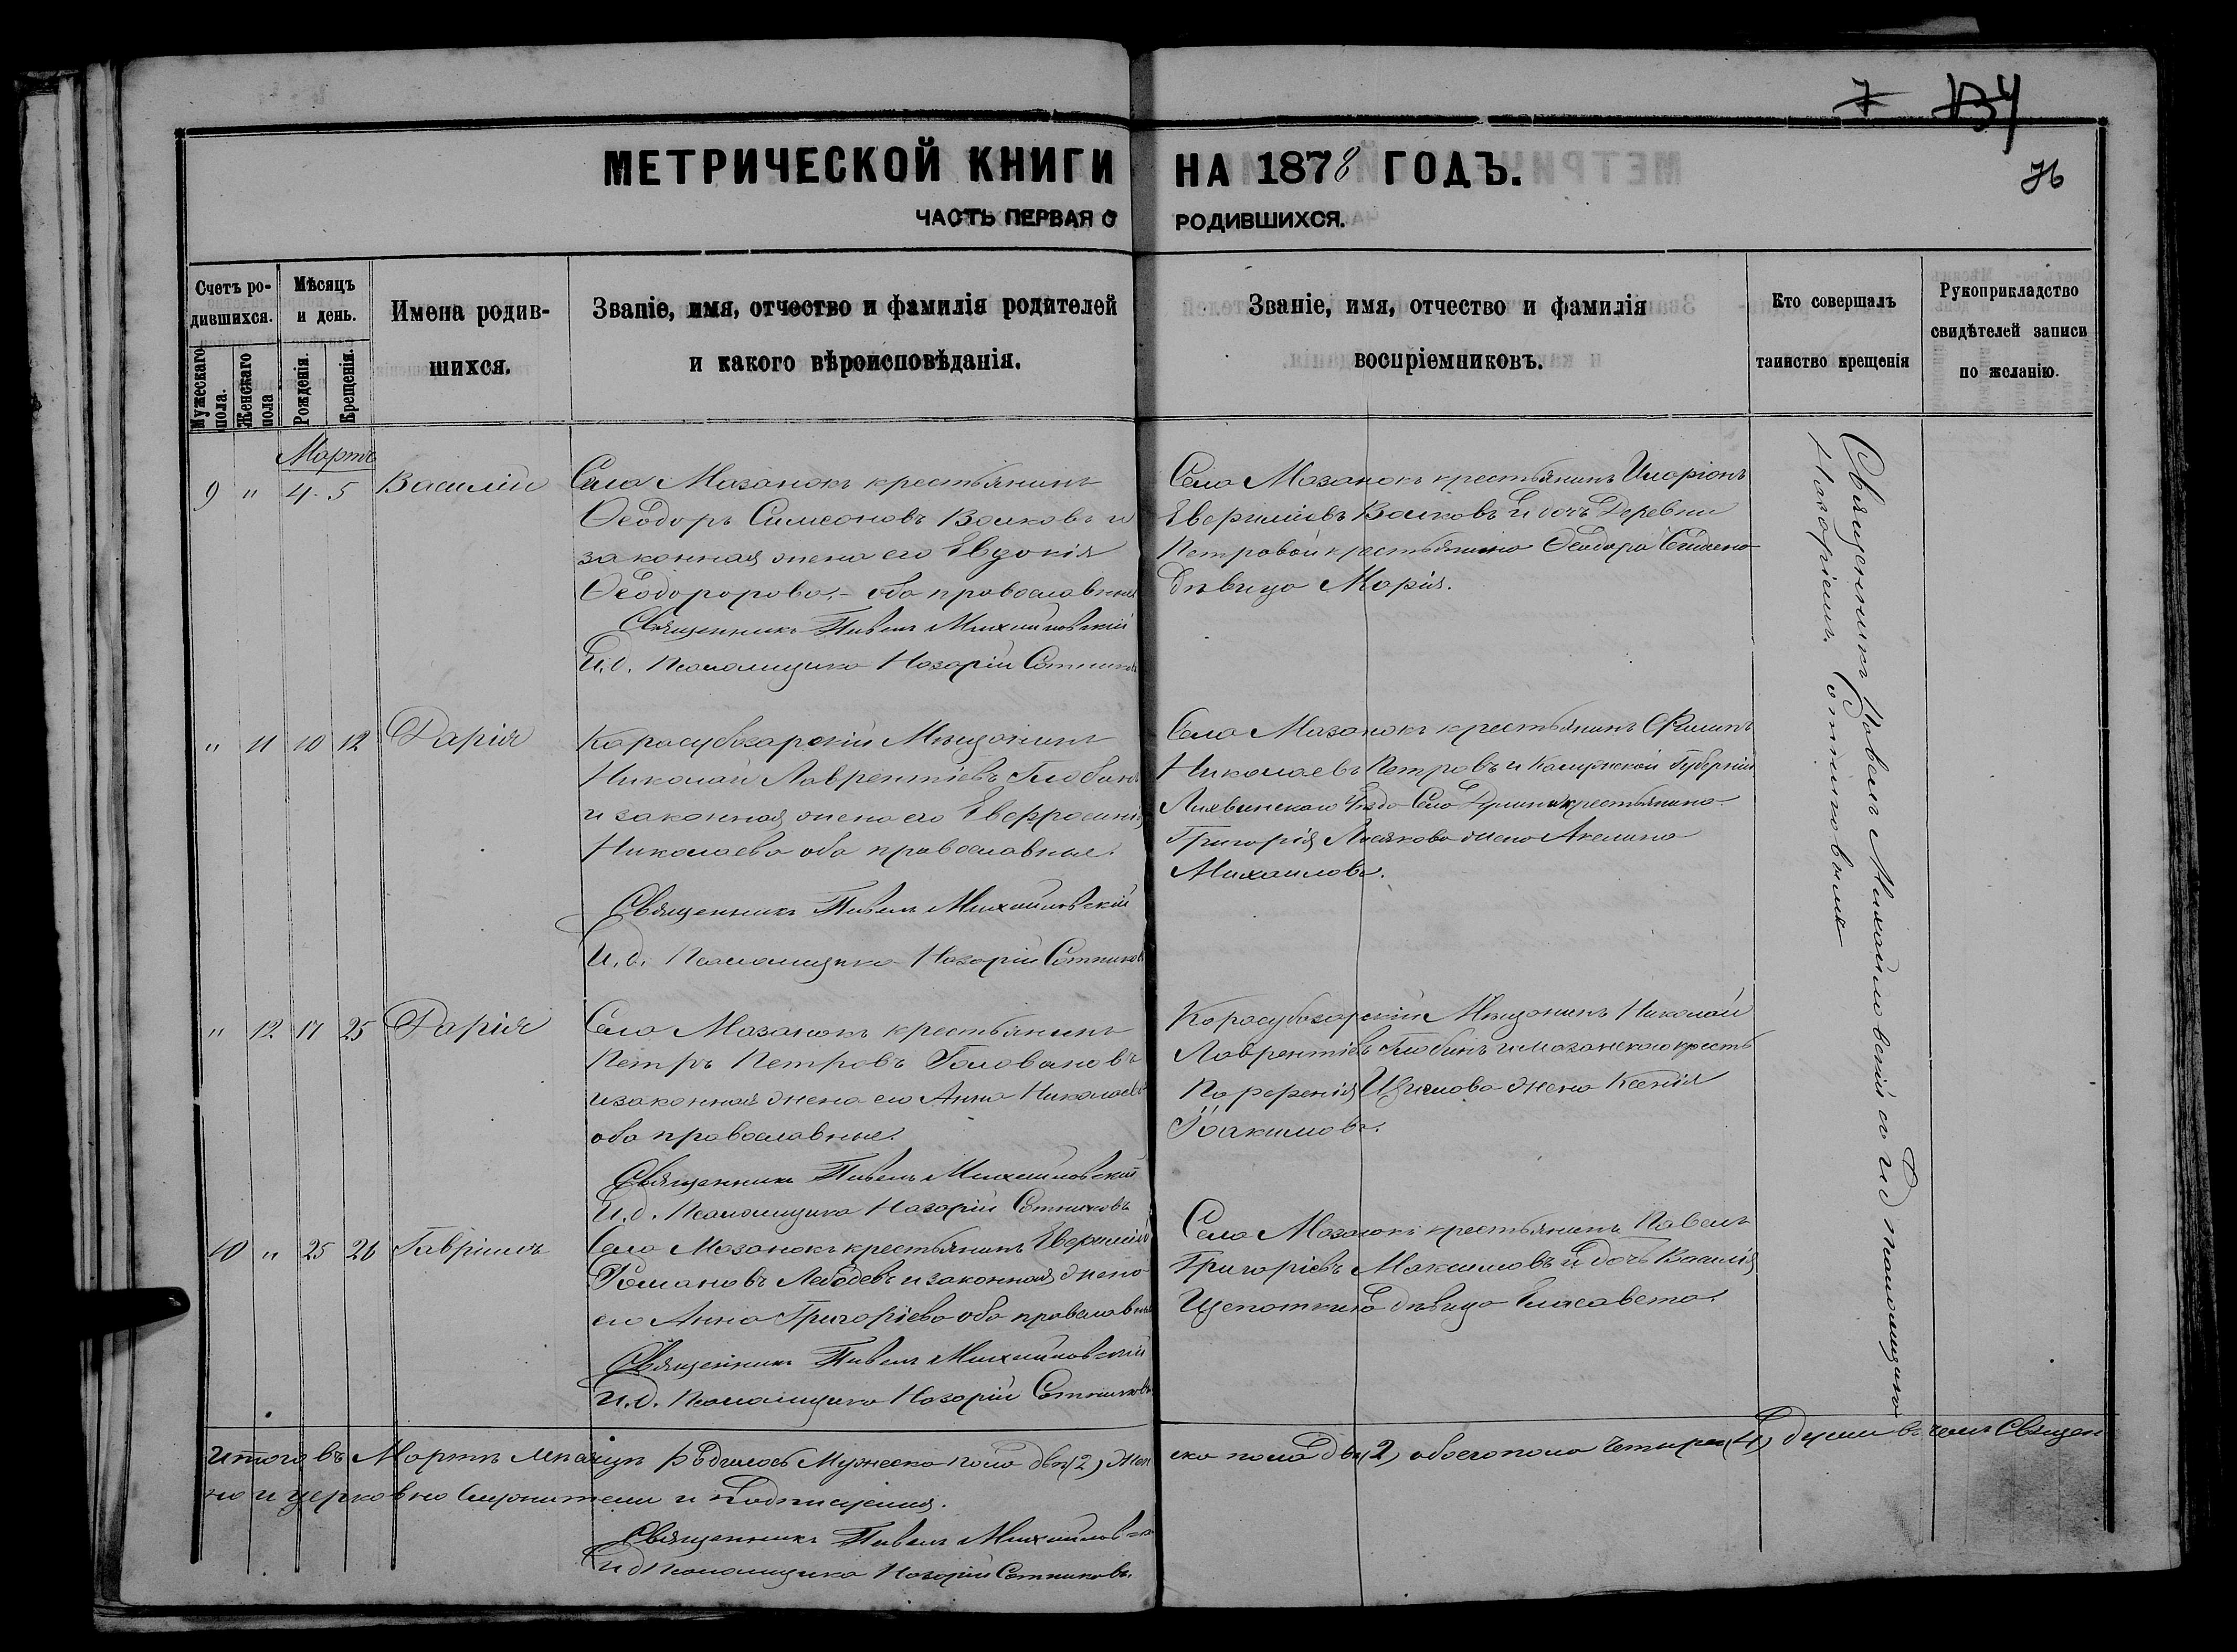 7 134
76
МЕТРИЧЕСКОЙ КНИГИ НА 1878 ГОДЪ.
ЧАСТЬ ПЕРВАЯ О РОДИВШИХСЯ.
Счетъ родившихся.
Мужескаго пола.
Женскаго пола
Мѣсяцъ и день.
Рожденія.
Крещенія.
Имена родившихся.
Званіе, имя, отчество и фамилія родителей
и какого вѣроисповѣданія.
Званіе, имя, отчество и фамилія
воспріемниковъ.
Кто совершалъ
таинство крещенія
Рукоприкладство
свидѣтелей записи
по желанію.
Мартъ
9 " 4 5 Василій
Села Мазанокъ крестьянинъ
Ѳеодоръ Симеоновъ Волковъ и
законная жена его Евдокія
Ѳеодоророва - оба православные
Священникъ Павелъ Михайловскій
И.д. Псаломщика Назарій Сотниковъ
Села Мазанокъ крестьянинъ Иларіонъ
Евфиміевъ Волковъ и дочь Деревни
Петровой крестьянина Ѳеодора
дѣвица Марія.
Священникъ Павелъ Михайловскій съ и д псаломщика
Назаріемъ Сотниковымъ
" 11 10 12 Дарія
Карасубазарскій Мѣщанинъ
Николай Лаврентіевъ Глобинъ
и законная жена его Евфросинія
Николаева оба православные.
Священникъ Павелъ Михайловскій
И.д. Псаломщика Назарій Сотниковъ
Села Мазанокъ крестьянинъ Филипъ
Николаевъ Петровъ и Калужской Губерніи
Лихвинскаго Уѣзда Села крестьянина
Григорія жена Акелина
Михаилова.
" 12 17 25 Дарія
Села Мазанокъ крестьянинъ
Петръ Петровъ Головановъ
и законная жена его Анна Николаева
оба православные.
Священникъ Павелъ Михайловскій
И.д. Псаломщика Назарій Сотниковъ
Карасубазарскій Мѣщанинъ Николай
Лаврентіевъ Глобинъ и мазанскаго крест
Парфенія жена Ксенія
Іоакимова.
10 " 25 26 Гавріилъ
Села Мазанокъ крестьянинъ Евфимій
Романовъ Лебедевъ и законная жена
его Анна Григоріева оба православные
Священникъ Павелъ Михайловскій
И.д. Псаломщика Назарій Сотниковъ
Села Мазанокъ крестьянинъ Павелъ
Григоріевъ Максимовъ и дочь Василія
Щепоткина дѣвица Елисавета.
Итого въ Мартѣ мѣсяцѣ родилось Мужеска пола два (2) Женска пола два (2) обоего пола четыре (4) души въ чемъ Священно
и церковно Служители и подписуемся.
Священникъ Павелъ Михайлов
И д Псаломщика Назарій Сотниковъ.